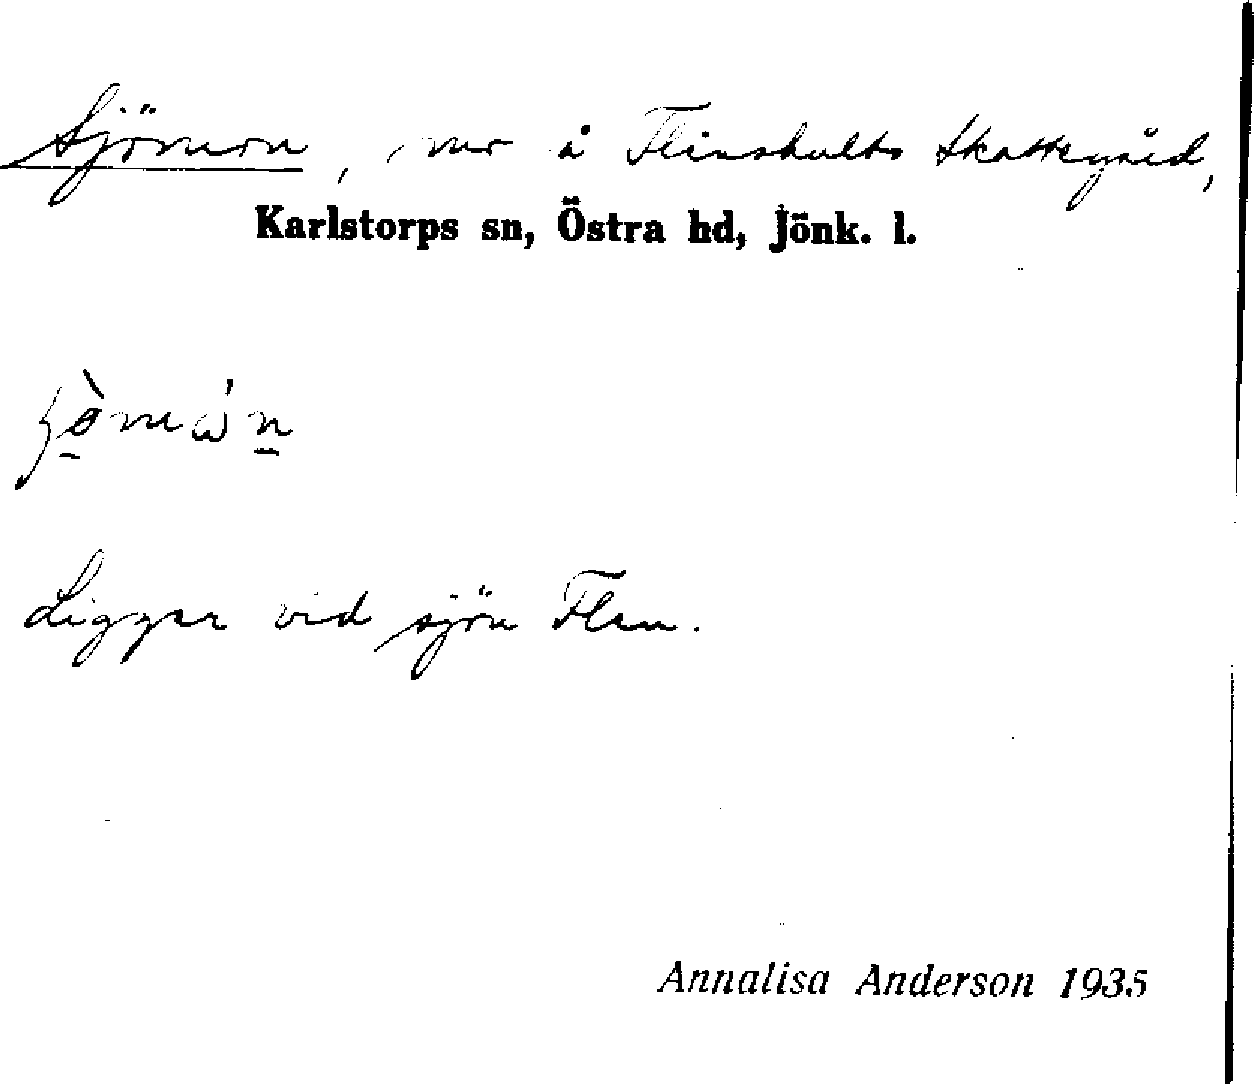 Sjömon, mo å Flinshults Skattegård,
Karlstorps sn, Östra hd, Jönk. l.
Ligger vid sjön Flen.
Annalisa Anderson 1935